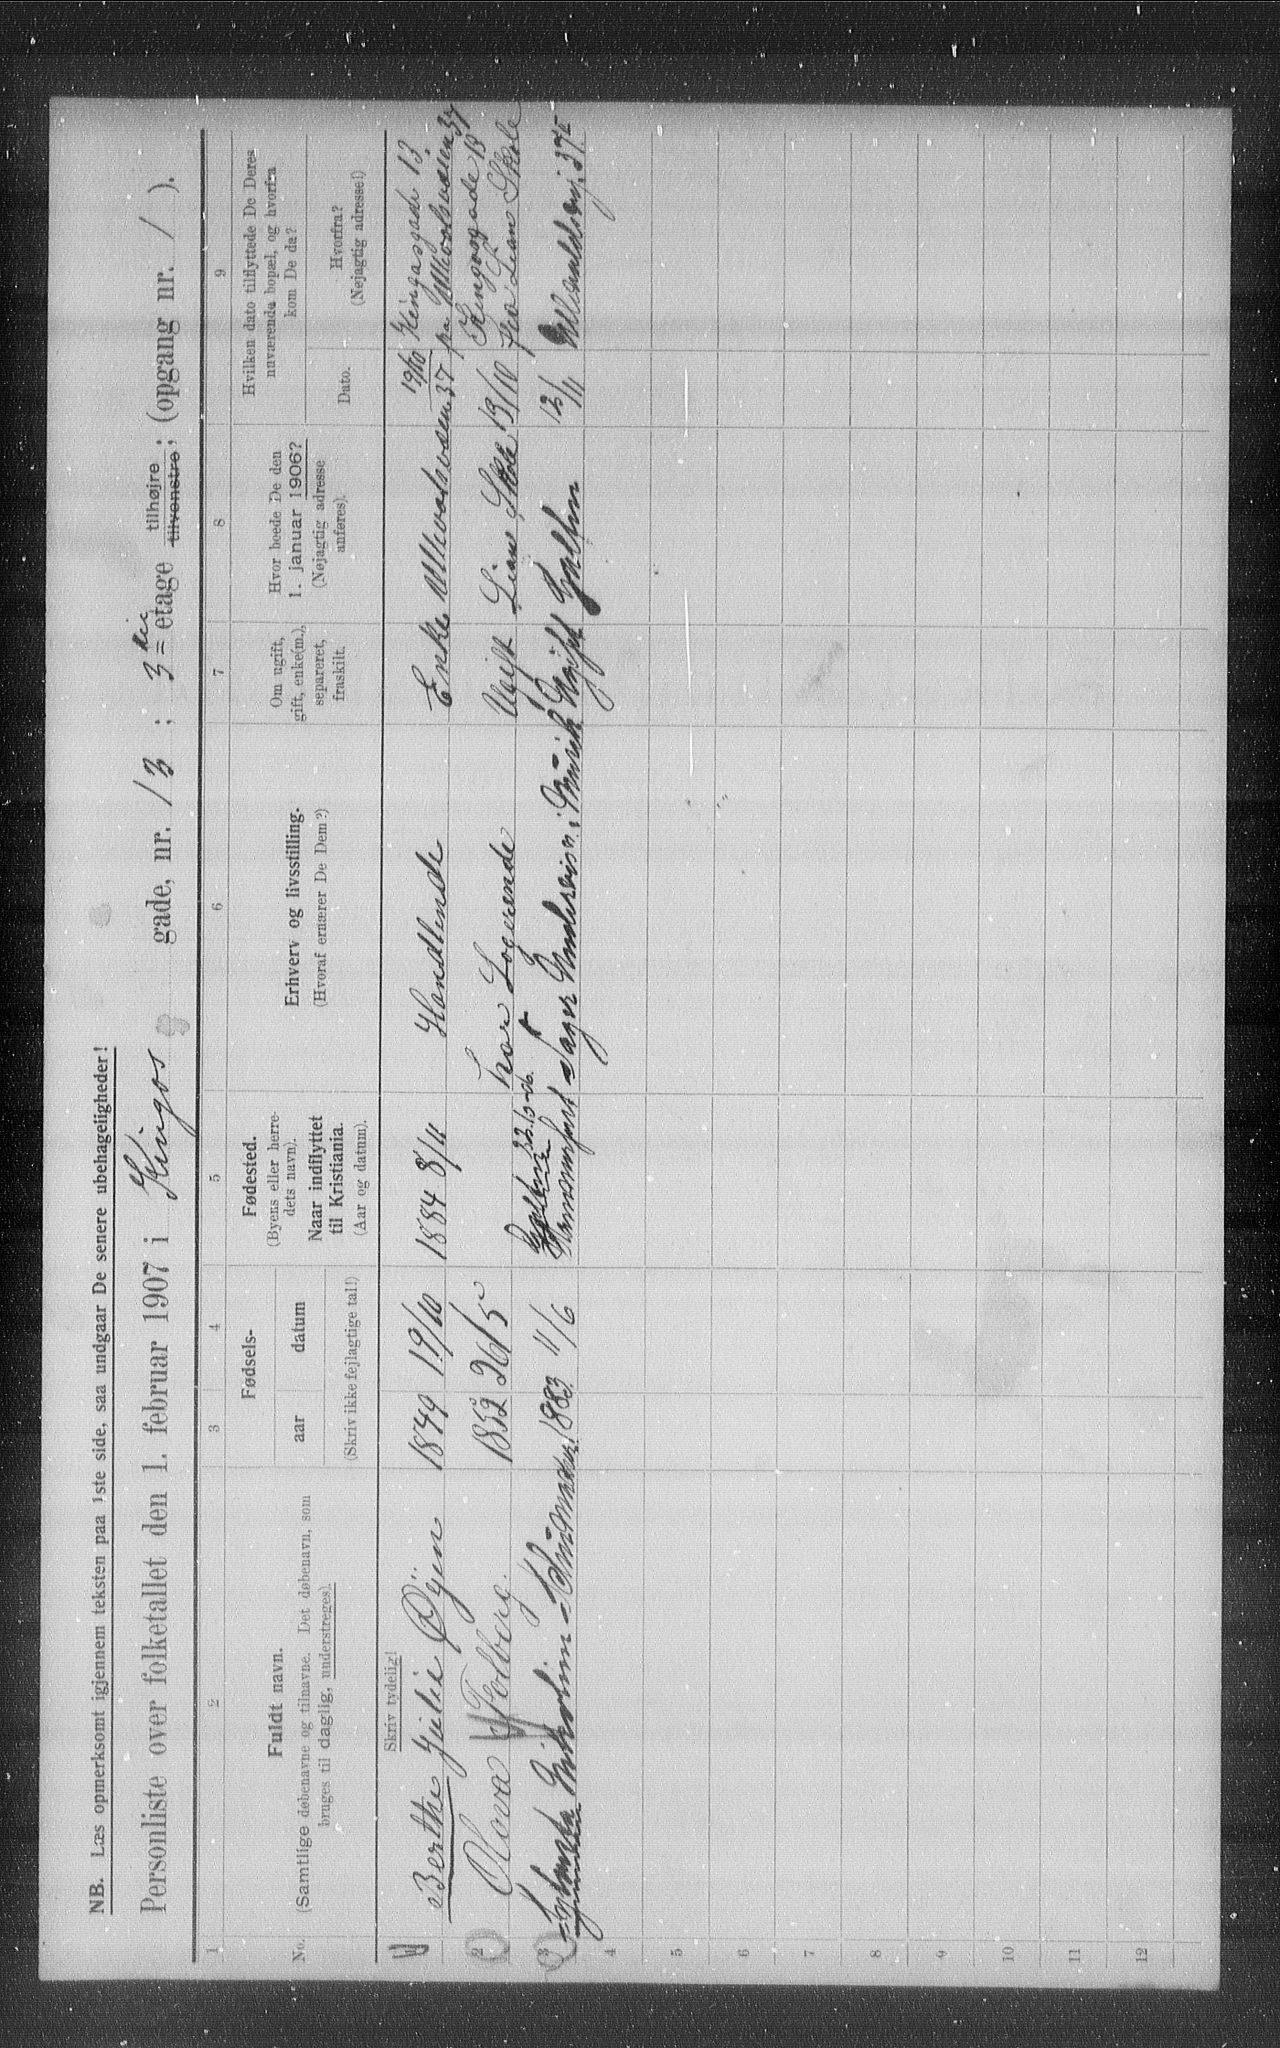 NB. Læs opmerksomt igjennem teksten paa 1ste side, saa undgaar De senere ubehageligheder!
Personliste over folketallet den 1. februar 1907 i Kingos gade, nr. 13 ; 3die etage tilhøjre tilvenstre ; (opgang nr. / ).
1 2 3 4 5 6 7 8 9
No.
Fuldt navn.
(Samtlige døbenavne og tilnavne. Det døbenavn, som
bruges til daglig, understreges).
Fødsels-
aar datum
(Skriv ikke fejlagtige tal!)
Fødested.
(Byens eller herre-
dets navn).
Naar indflyttet
til Kristiania.
(Aar og datum).
Erhverv og livsstilling.
(Hvoraf ernærer De Dem?)
Om ugift,
gift, enke(m.),
separeret,
fraskilt.
Hvor boede De den
1. januar 1906?
(Nøjagtig adresse
anføres).
Hvilken dato tilflyttede De Deres
nuværende bopæl, og hvorfra
kom De da?
Dato.
Hvorfra?
(Nøjagtig adresse!)
Skriv tydelig!
Berthe Julie Öjen 1849 19/10 1884 8/4 Handlende Enke 37 19/10 Kingosgade 13
fra 37
2 Olova Folberg. 1852 26/5 Logerende Ugift Lian Skole 19/10 Kingosgade 13
fra Lian Skole
22/5-06.
3 1883 11/6 Hammerfest Ugift 12/11 37
4
5
6
7
8
9
10
11
12